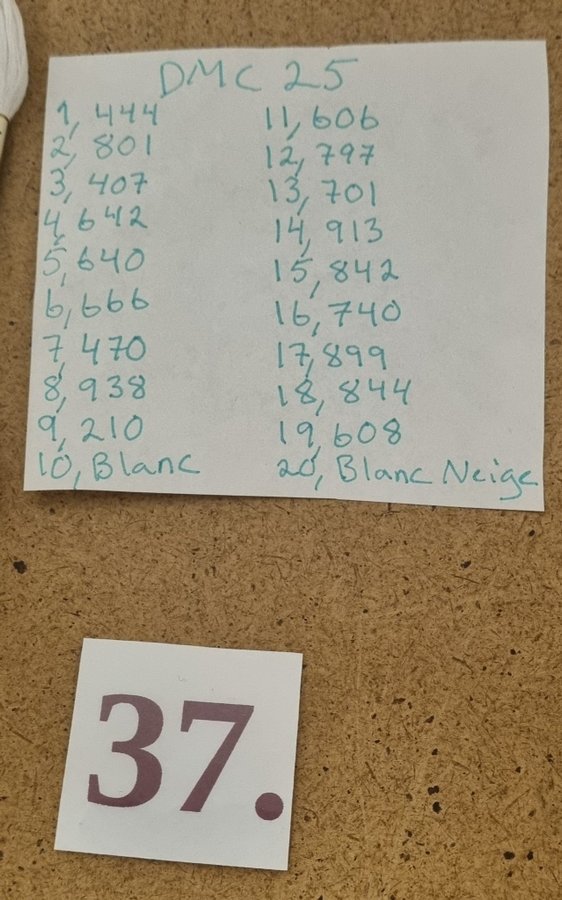 DMC 25
1, 444
2, 801
3, 407
4, 642
5, 640
6, 666
7, 470
8, 938
9, 210
10, Blanc
11, 606
12, 797
13, 701
14, 913
15, 842
16, 740
17, 899
18, 844
19, 608
20, Blanc Neige
37.